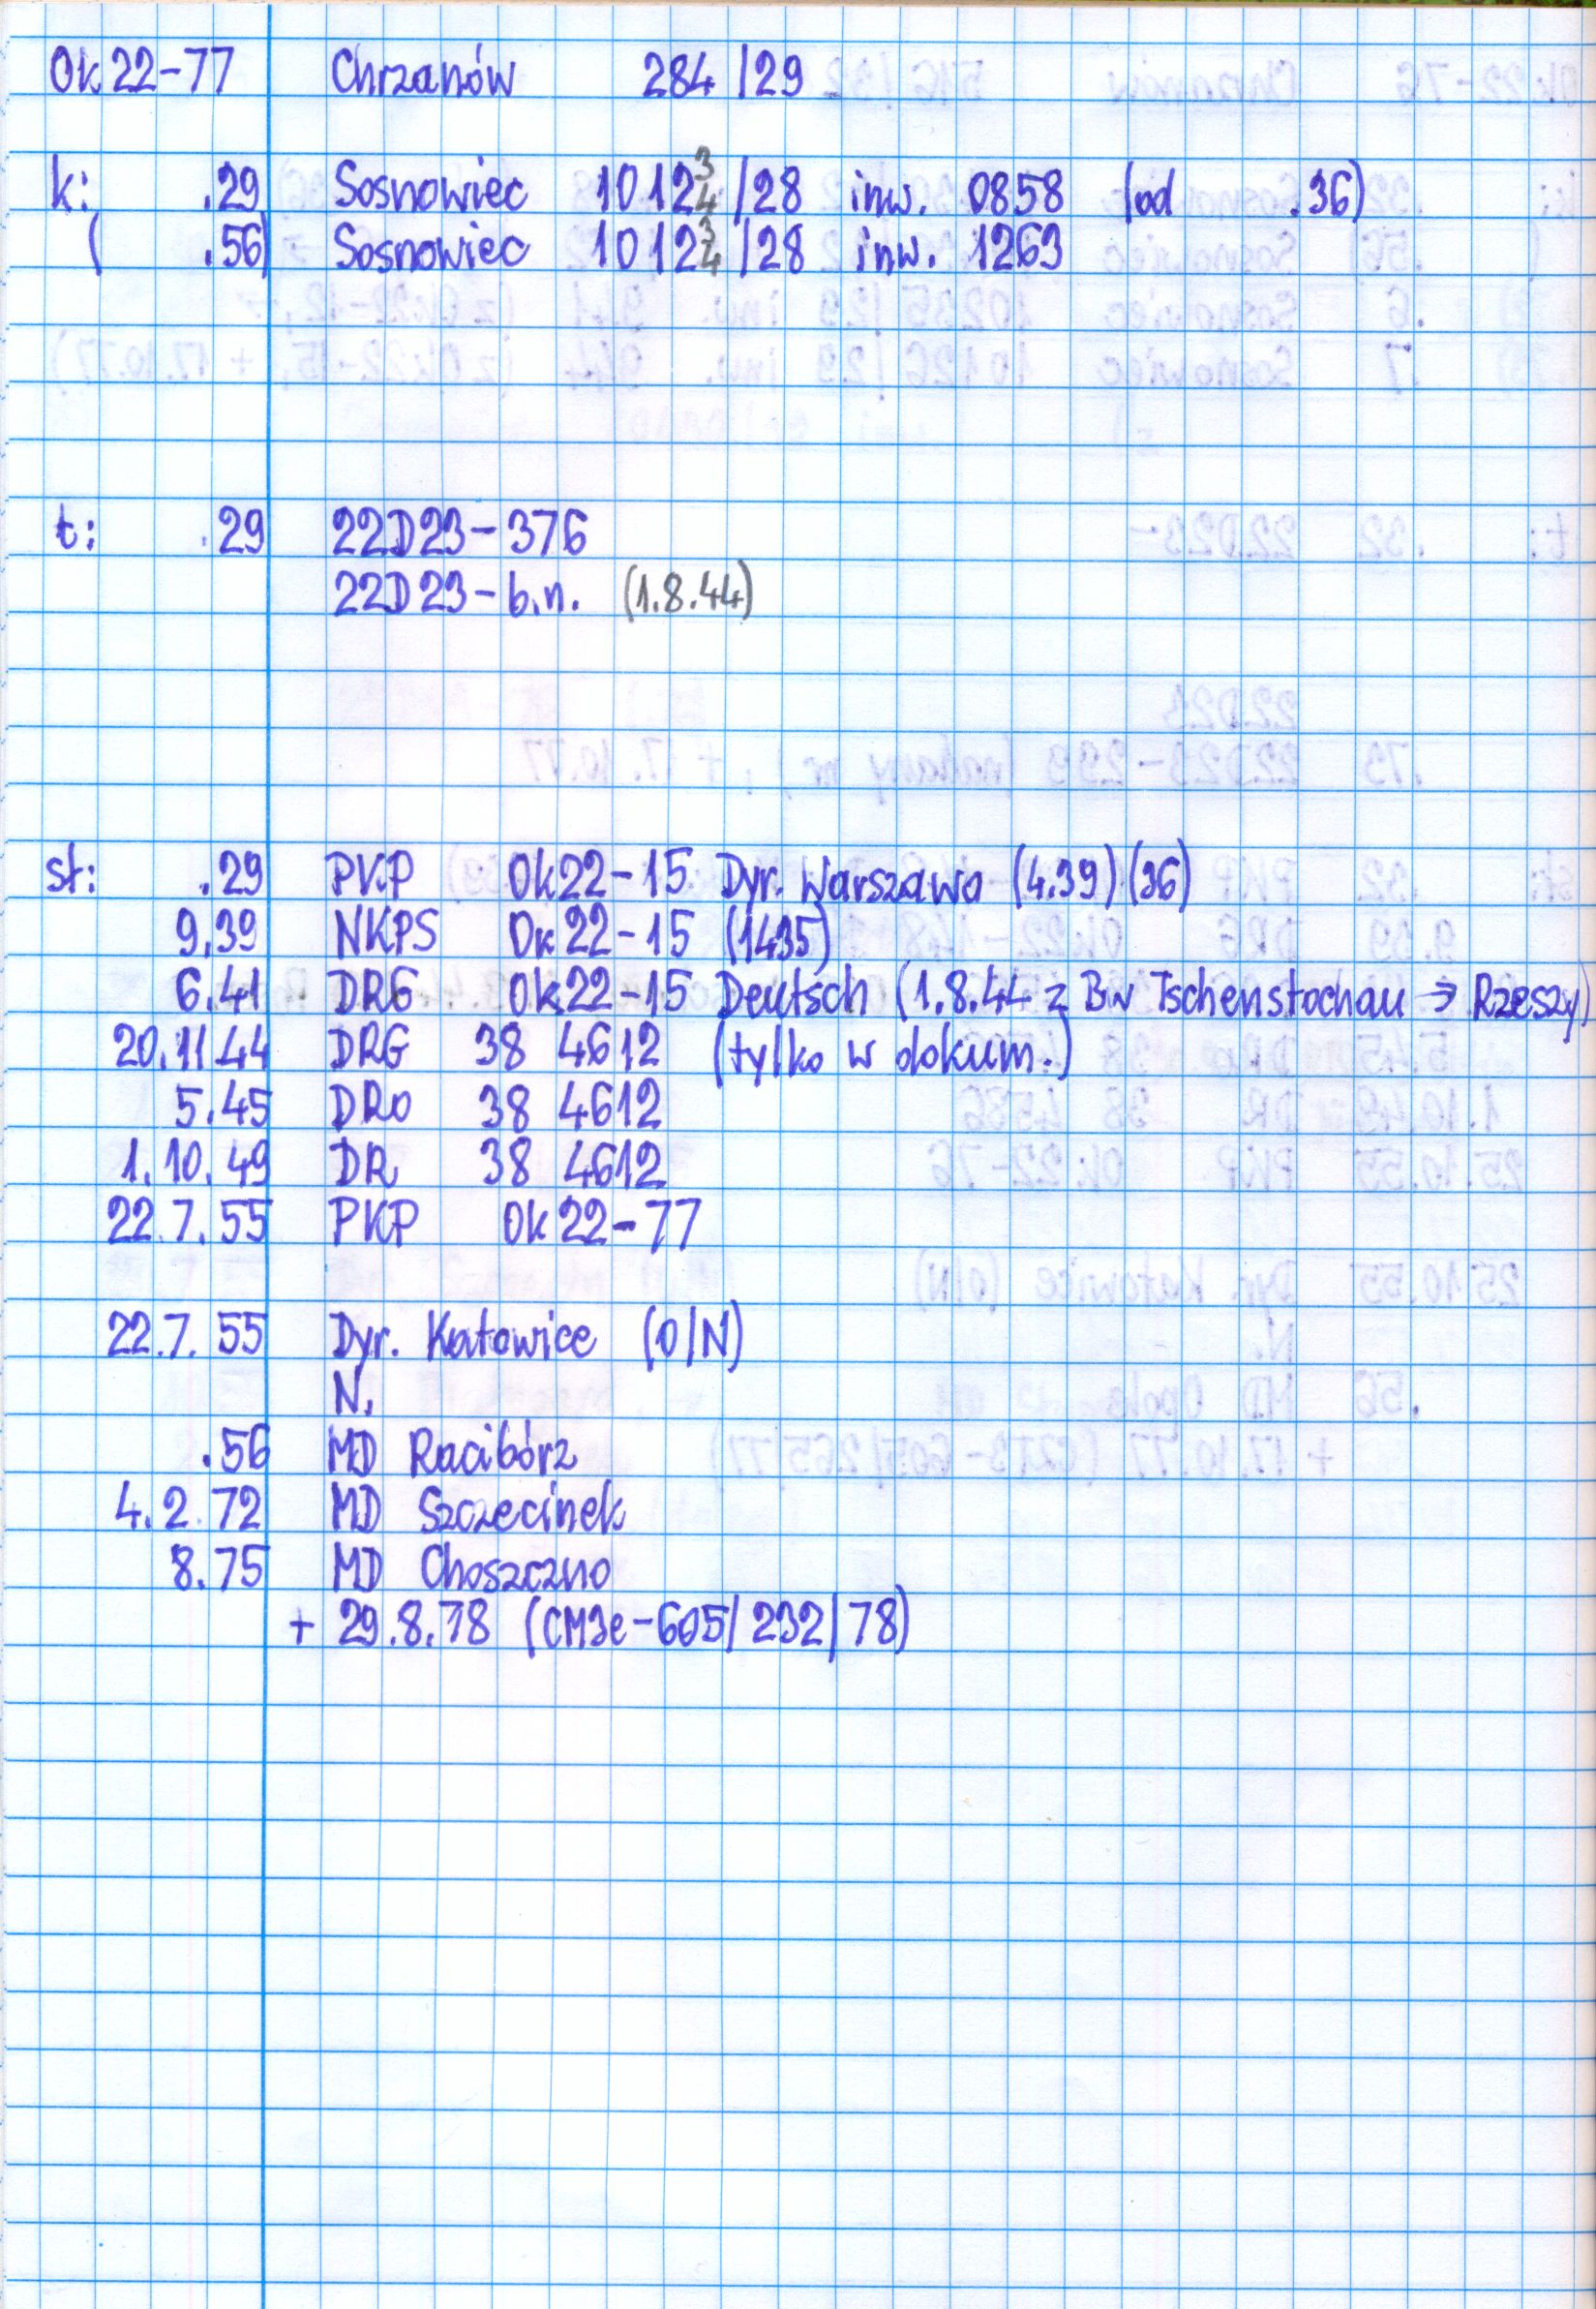 Ok22-77 Chrzanów 284/29
k: .29 Sosnowiec 1012 3/4 /28 inw. 0858 (od .36)
( .56) Sosnowiec 1012 3/4 /28 inw. 1263
t: .29 22D23-376
22D23-b.n. (1.8.44)
st: .29 PKP Ok22-15 Dyr. Warszawa (4.39) (36)
9.39 NKPS Ок22-15 (1435)
6.41 DRG Ok22-15 Deutsch (1.8.44 z Bw Tschenstochau → Rzeszy)
20.11.44 DRG 38 4612 (tylko w dokum.)
5.45 DRo 38 4612
1.10.49 DR 38 4612
22.7.55 PKP Ok22-77
22.7.55 Dyr. Katowice (O/N)
N.
.56 MD Racibórz
4.2.72 MD Szczecinek
8.75 MD Choszczno
+ 29.8.78 (CM3e-605/232/78)